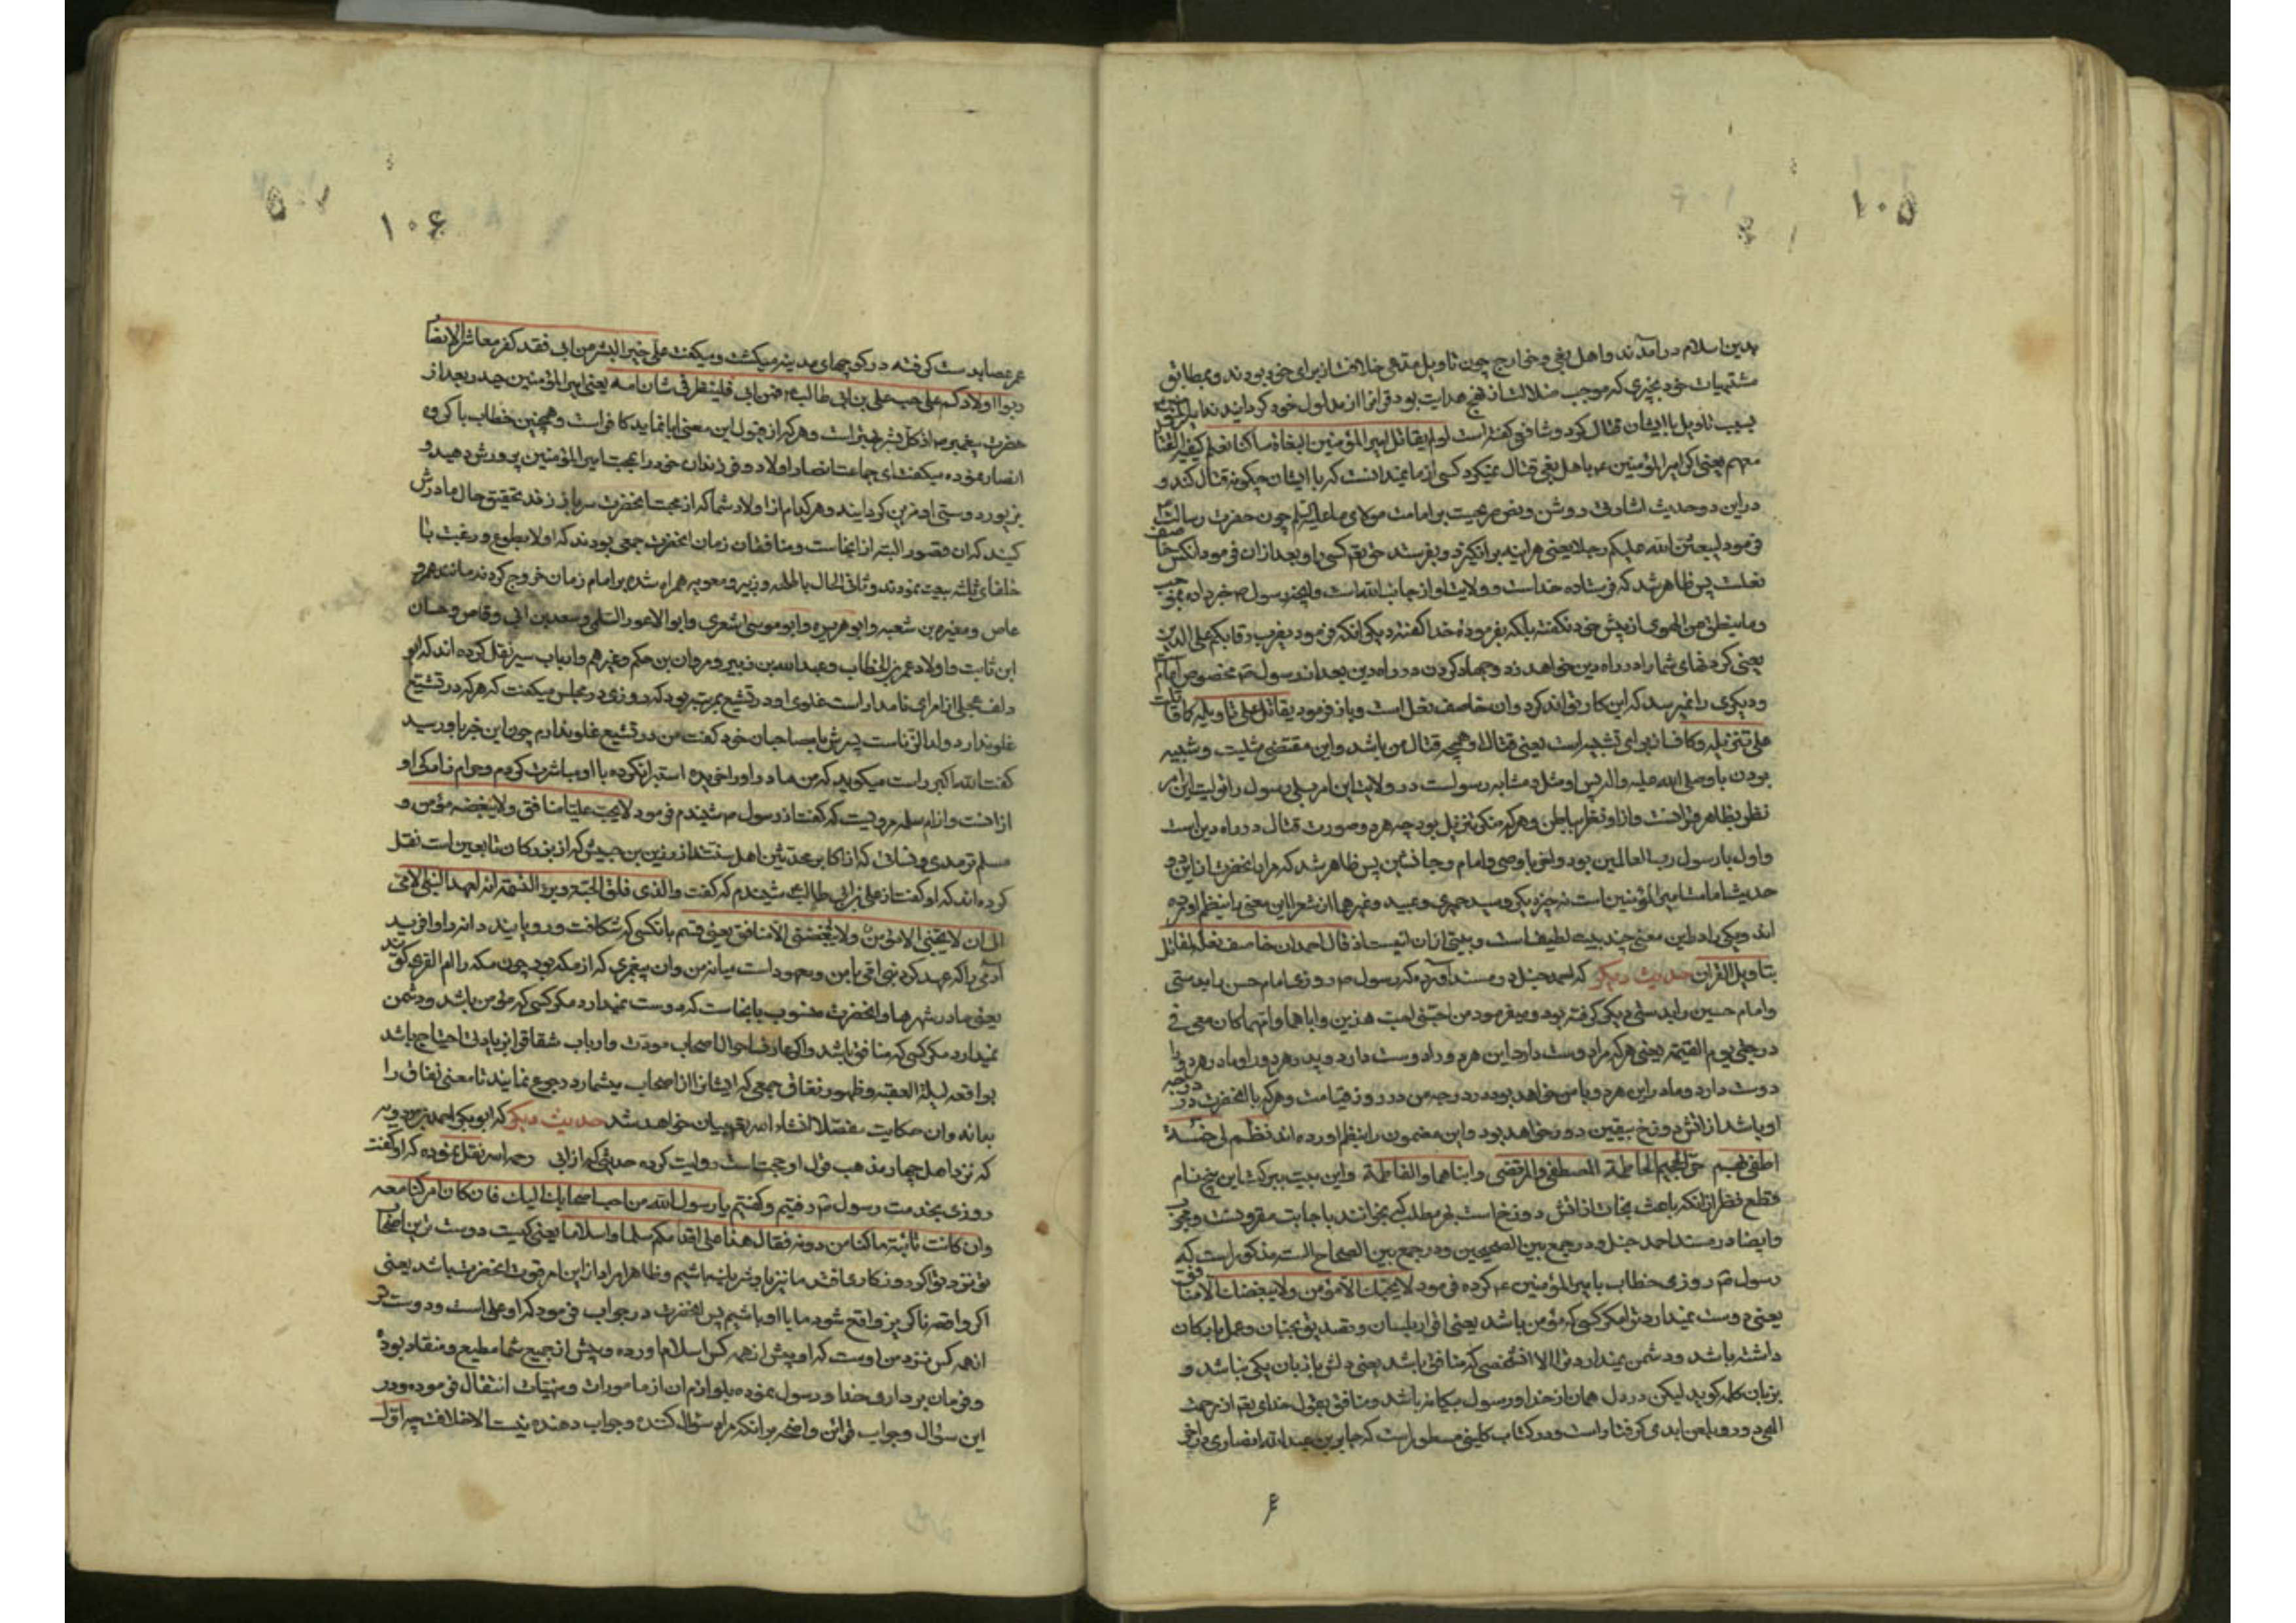 ۱۰۵
بدین اسلام درآمدند و اهل بغی و خوارج چون تاویل مدعی خلافتند از برای خود بودند و بمطابق
مشتهیات خود بخبری که موجب ضلالت از نهج هدایت بود قرانرا از مدلول خود گردانیدند
بسبب تاویل با ایشان قتال کرد و شافعی گفته است لو لم یقاتل امیر المؤمنین البغاة ما کنا نعلم کیفیة القتال
معهم یعنی اگر امیر المؤمنین ع با اهل بغی قتال نمیکرد کسی از ما نمیدانست که با ایشان چگونه قتال کند و
در این دو حدیث اشارتی روشن و نص صریحیست بر امامت مولای ما علیه السلام چون حضرت رسالت
فرمود لیبعثن الله علیکم رجلا یعنی هر اینه برانگیزد و بفرستد حق تعم کسی را و بعد از ان فرمود انکس خاصف
نعلست پس ظاهر شد که فرستاده خداست و ولایت او از جانب الله است و اینچه رسول ص خبر داده بموجب
و ما ینطق عن الهوی از پیش خود نگفته بلکه بفرمودهٔ خدا گفته دیگر انکه فرمود یضرب رقابکم علی الدین
یعنی گردنهای شما را در راه دین خواهد زد و جهاد کردن در راه دین بعد از رسول ص مخصوص امام است
و دیگری را نمیرسد که این کار تواند کرد و ان خاصف نعل است و باز فرمود یقاتل علی تاویله کما قاتلت
علی تنزیله و کاف از برای تشبیه است یعنی قتال او همچه قتال من باشد و این مقتضی مثلیت و شبیه
بودن با وصلی الله علیه و اله پس او مثل و مشابه رسولست در ولایت این امر بلی رسول را تولیت این امر
نظر بظاهر قرانست و او را نظر بباطن و هر که منکر تنزیل بود چه هر دو صورت قتال در راه دین است
و اول با رسول رب العالمین بود و ثانی با وصی و امام و جانشین پس ظاهر شد که مراد انحضرت از این دو
حدیث امامت امیر المؤمنین است نه چیز دیگر و سید حمیری و عبدی و غیر هما از شعرا این معنی را بنظم اورده
اند و یکی را در این معنی چند بیت لطیف است و بیتی از ان اینست اذ قال احمد ان خاصف نعله لمقاتل
بتاویل القران حدیث دیگر که احمد حنبل در مسند آورده که رسول ص روزی امام حسن را بدستی
و امام حسین را بدستی دیگر گرفته بود و میفرمود من احبنی احب هذین و اباهما و امهما کان معی فی
درجتی یوم القیمة یعنی هر که مرا دوست دارد این هر دو را دوست دارد و پدر هر دو را و مادر هر دو را
دوست دارد و مادر این هر دو با من خواهد بود در درجه من در روز قیامت و هر که با انحضرت در درجه
او باشد از اتش دوزخ بیقین دور خواهد بود و این مضمون را بنظم اورده اند نظم لی خمسة
اطفی بهم حر الجحیم الحاطمة المصطفی و المرتضی و ابناهما و الفاطمة و این بیت ببرکت این پنج نام
قطع نظر از انکه باعث نجات از اتش دوزخ است بهر مطلب که بخوانند باجابت مقرونست و مجرب
و ایضا در مسند احمد حنبل و در جمع بین الصحیحین و در جمع بین الصحاح السته مذکور است که
رسول ص روزی خطاب با امیر المؤمنین ع کرده فرمود لا یحبک الا مؤمن و لا یبغضک الا منافق
یعنی دوست نمیدارد ترا مگر کسی که مؤمن باشد یعنی اقرار بلسان و تصدیق بجنان و عمل بارکان
داشته باشد و دشمن نمیدارد ترا الا شخصی که منافق باشد یعنی دلش با زبان یکی نباشد و
بزبان کلمه گوید لیکن در دل همان از خدا و رسول بیگانه باشد و منافق بقول خدای تعم از رحمت
الهی دور و بلعن ابدی گرفتار است و در کتاب کلینی مسطور است که جابر بن عبد الله انصاری در اخر
۱۰۶
عمر عصا بدست گرفته در کوچهای مدینه میگشت و میگفت علی خیر البشر من ابی فقد کفر معاشر الانصار
ربوا اولادکم علی حب علی بن ابی طالب ع فمن ابی فلینظر فی شان امه یعنی امیر المؤمنین حیدر بعد از
حضرت پیغمبر ص از کل بشر بهتر است و هر که از قبول این معنی ابا نماید کافر است و همچنین خطاب با گروه
انصار نموده میگفت ای جماعت انصار اولاد و فرزندان خود را بمحبت امیر المؤمنین پرورش دهید و
بزیور دوستی او مزین گردانید و هر کدام از اولاد شما که از محبت انحضرت سر باز زند تحقیق حال مادرش
کنید که ان قصور البته از انجاست و منافقان زمان انحضرت جمعی بودند که اولا بطوع و رغبت با
خلفای ثلثه بیعت نمودند و ثانی الحال با طلحه و زبیر و معویه همراه شده بر امام زمان خروج کردند مانند عمرو
عاص و مغیرة بن شعبه و ابو هریره و ابو موسی اشعری و ابو الاعور السلمی و سعد بن ابی وقاص و حسان
ابن ثابت و اولاد عمر بن الخطاب و عبد الله بن زبیر و مروان بن حکم و غیرهم و ارباب سیر نقل کرده اند که ابو
دلف عجلی از امرای نامدار است غلوی او در تشیع بمرتبه بود که روزی در مجلس میگفت که هر که در تشیع
غلو ندارد ولد الزناست پسرش با مصاحبان خود گفت من در تشیع غلو ندارم چون این خبر باو رسید
گفت الله اکبر راست میگوید که من مادر او را خریده استبرا نکرده با او مباشرت کردم و حرام زادگی او
از انست و از ام سلمه مرویست که گفت از رسول ص شنیدم فرمود لا یحب علیا منافق و لا یبغضه مؤمن و
مسلم ترمدی و نسائی که از اکابر محدثین اهل سنتند از زر بن حبیش که از بزرگان تابعین است نقل
کرده اند که او گفت از علی بن ابی طالب ع شنیدم که گفت و الذی فلق الحبة و برء النسمة انه لعهد النبی الامی
الی ان لا یحبنی الا مؤمن و لا یبغضنی الا منافق یعنی قسم بانکسی که شکافت و رویانید دانه را و افرید
آدمی را که عهد کرد نبی امی با من و معهود است میانه من و ان پیغمبری که از مکه بود چون مکه را ام القری گویند
یعنی مادر شهرها و انحضرت منسوب بانجاست که دوست نمیدارد مگر کسی که مؤمن باشد و دشمن
نمیدارد مگر کسی که منافق باشد و اگر عارف احوال اصحاب مودت و ارباب شقاق را بزیادتی احتیاج باشد
بواقعه لیلة العقبه و ظهور نفاق جمعی که ایشانرا از اصحاب میشمارد رجوع نمایند تا معنی نفاق را
بدانند و ان حکایت مفصلا انشاء الله تعم بیان خواهد شد حدیث دیگر که ابو بکر احمد بن مردویه
که نزد اهل چهار مذهب قول او حجت است روایت کرده حدیثی که از ابی رحمه الله نقل نموده که او گفت
روزی بخدمت رسول ص رفتیم و گفتیم یا رسول الله من احب اصحابک الیک فان کان امر کنا معه
و ان کانت نائبة ما کنا من دونه فقال هذا علی اقدمکم سلما و اسلاما یعنی کیست دوست ترین اصحاب
تو نزد تو اگر روزگار عاقت ما نیز یا و شریک باشیم و ظاهرا مراد از این امر فوت انحضرت باشد یعنی
اگر واقعه ناگزیر واقع شود ما با او باشیم پس انحضرت در جواب فرمود که او علی است و دوست تر
از همه کس نزد من اوست که او پیش از همه کس اسلام اورده و پیش از جمیع شما مطیع و منقاد بوده
و فرمان برداری خدا و رسول نموده بلوازم ان از مامورات و منهیات انتقال فرموده و در
این سؤال و جواب قراین واضحه بر انکه مراد سؤال کننده و جواب دهنده نیست الا خلافت چه اول